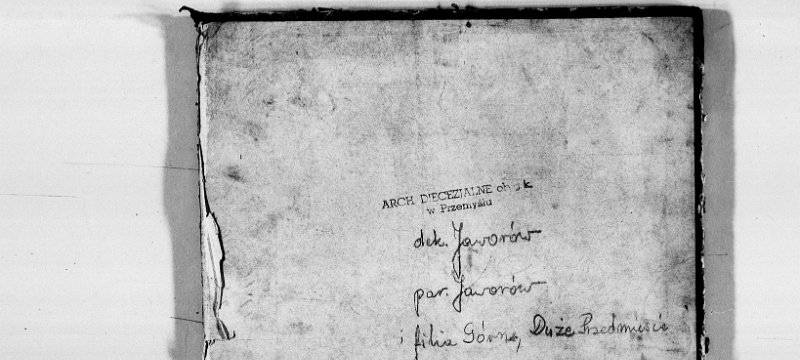 ARCH DIECEZJALNE ob. ł.k
w Przemyślu
dek. Jaworów
par. Jaworów
i filia Górne, Duże Przedmieście